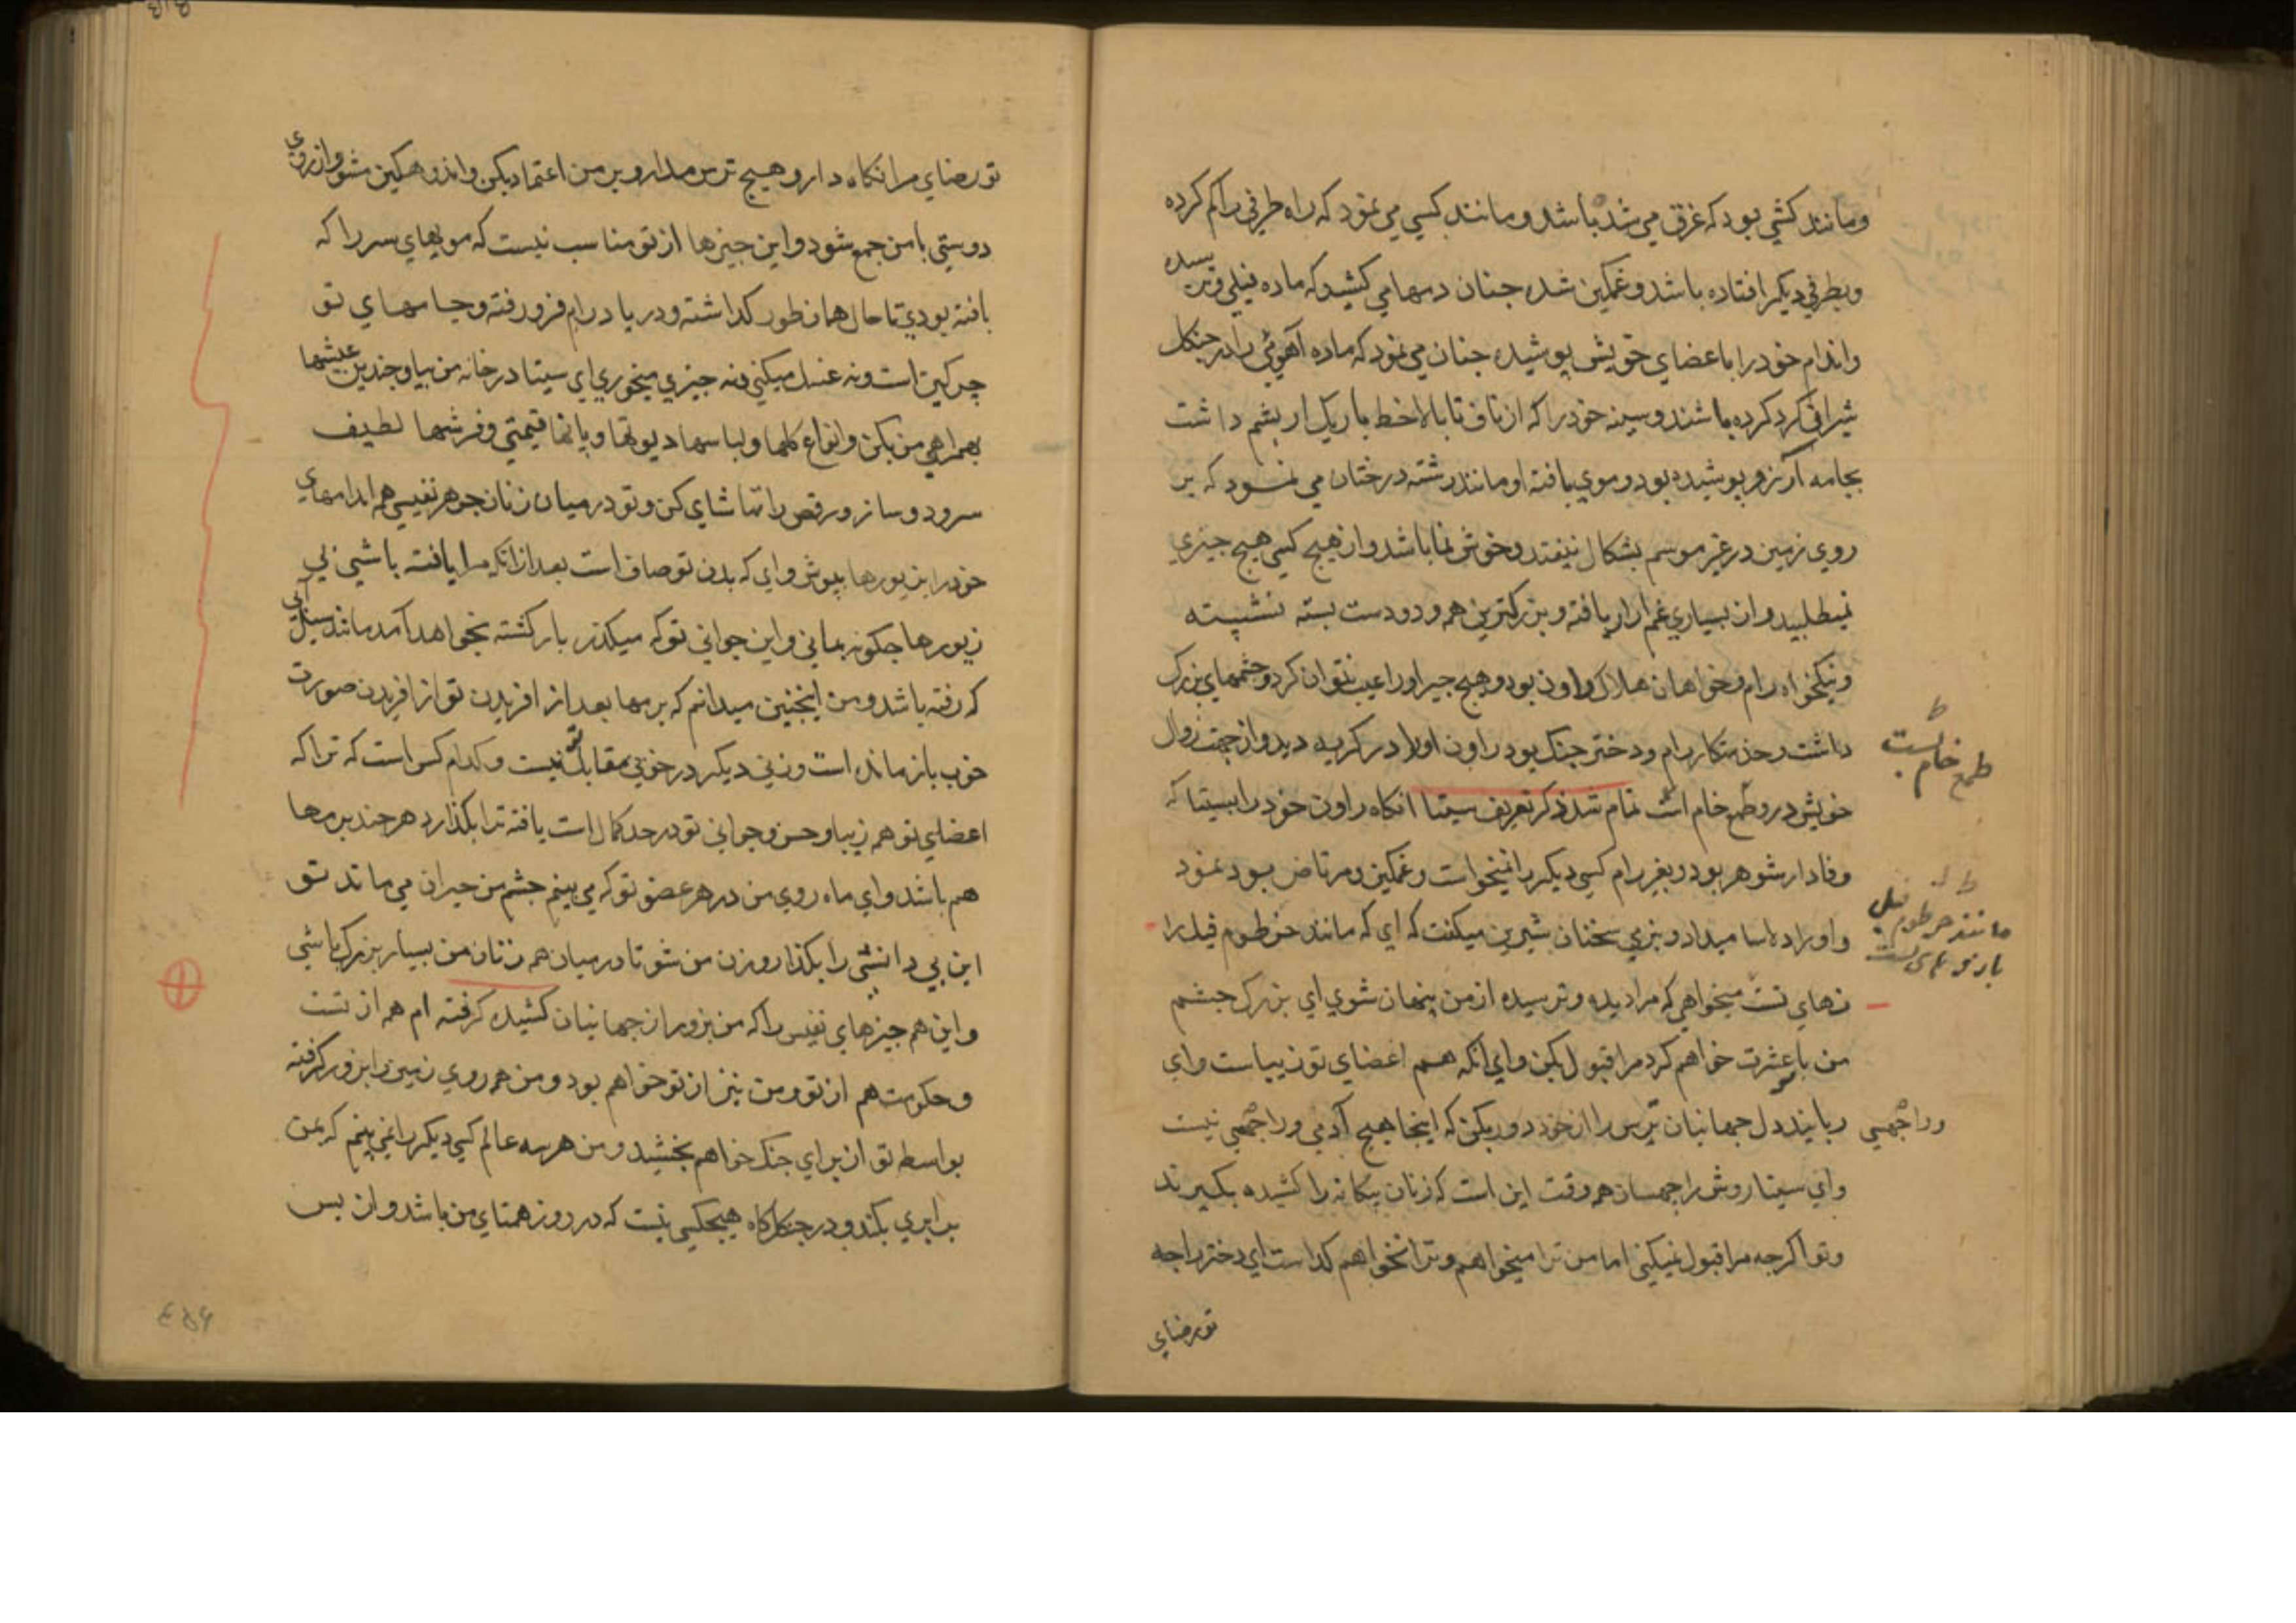 ومانند کشتی بود که غرق می شده باشد ومانند کسی می نمود که راه طرفی را کم کرده
وبطرفی دیکر افتاده باشد وغمکین شده جنان دمها می کشید که ماده فیلی وترسیده
واندام خود را باعضای خویش پوشیده جنان می نمود که ماده آهوئی را در جنکل
شیرانی کرد کرده باشند وسینه خود را که از ناف تا بالا خط باریک ابریشم داشت
بجامه آرزو پوشیده بود وموی بافته او مانند رشته درختان می نمود که بر
روی زمین در غیر موسم بشکال نیفتد وخوش نما باشد واز هیج کسی هیج جیزی
نمیطلبید واز بسیاری غم ازار یافته وبزرکترین همه ودو دست بسته نشسته
ونیکخواه رام وخواهان هلاک راون بود وهیج جیز اورا عیب نتوان کرد وچشمهای بزرک
داشت وخدمتکار رام ودختر جنک بود راون اورا در کریه دید واز جهت زوال
خویش در و طمع خام است تمام شد ذکر تعریف سیتا انکاه راون خود را بسیتا که
وفادار شوهر بود وبغیر رام کسی دیکر را نمیخواست وغمکین ومرتاض بود نمود
واورا دلاسا میداد وبنرمی سخنان شیرین میکفت که ای که مانند خرطوم فیل را
نهای تست میخواهی که مرا دیده وترسیده از من پنهان شوی ای بزرک جشم
من با تو عشرت خواهم کرد مرا قبول بکن وای انکه همه اعضای تو زیباست وای
رباینده دل جهانیان ترس را از خود دور بکن که اینجا هیج آدمی وراجهسی نیست
وای سیتا روش راجهسان همه وقت این است که زنان بیکانه را کشیده بکیرند
وتو اکرجه مرا قبول نمیکنی اما من ترا میخواهم وترا نخواهم کداشت ای دختر راجه
تو رضای
طمع خام بست
مانند خرطوم فیل
وراجهسی
تو رضای مرا نکاه دار وهیج ترس مدار وبر من اعتماد بکن واندوهکین مشو واز روی
دوستی با من جمع شو واین جیزها از تو مناسب نیست که مویهای سر را که
بافته بودی تا حال همانطور کداشته ودر یاد رام فرو رفته وجامهای تو
چرکین است ونه غسل میکنی ونه جیزی میخوری ای سیتا در خانه من بیا وجندین عیشها
بهمراهی من بکن وانواع کلها ولباسها دیوتها وپانها قیمتی وفرشها لطیف
سرود وساز ورقص را تماشای کن وتو در میان زنان جوهر نفیسی همه اندامهای
خود را بزیورها بپوش وای که بدن تو صاف است بعد از انکه مرا یافته باشی بی
زیورها جکونه بمانی واین جوانی تو که میکذرد باز کشته نخواهد آمد مانند سیل آبی
که رفته باشد ومن اینجنین میدانم که برمها بعد از افریدن تو از افریدن صورت
خوب باز مانده است وزنی دیکر در خوبی مقابل تو نیست وکدام کس است که ترا که
اعضای تو همه زیبا وحسن وجوانی تو در حد کمال است یافته ترا بکذارد هرجند برمها
هم باشد وای ماه روی من در هر عضو تو که می بینم جشم من حیران می ماند تو
این بی دانشی را بکذار وزن من شو تا در میان همه زنان من بسیار بزرک باشی
واین همه جیزهای نفیس را که من بزور از جهانیان کشیده کرفته ام همه از تست
وحکومت هم از تو ومن نیز از تو خواهم بود ومن همه روی زمین را بزور کرفته
بواسطه تو از برای جنک خواهم بخشید ومن در هر سه عالم کسی دیکر را نمی بینم که بمن
برابری بکند ودر جنکگاه هیجکسی نیست که در زور همتای من باشد واز بس